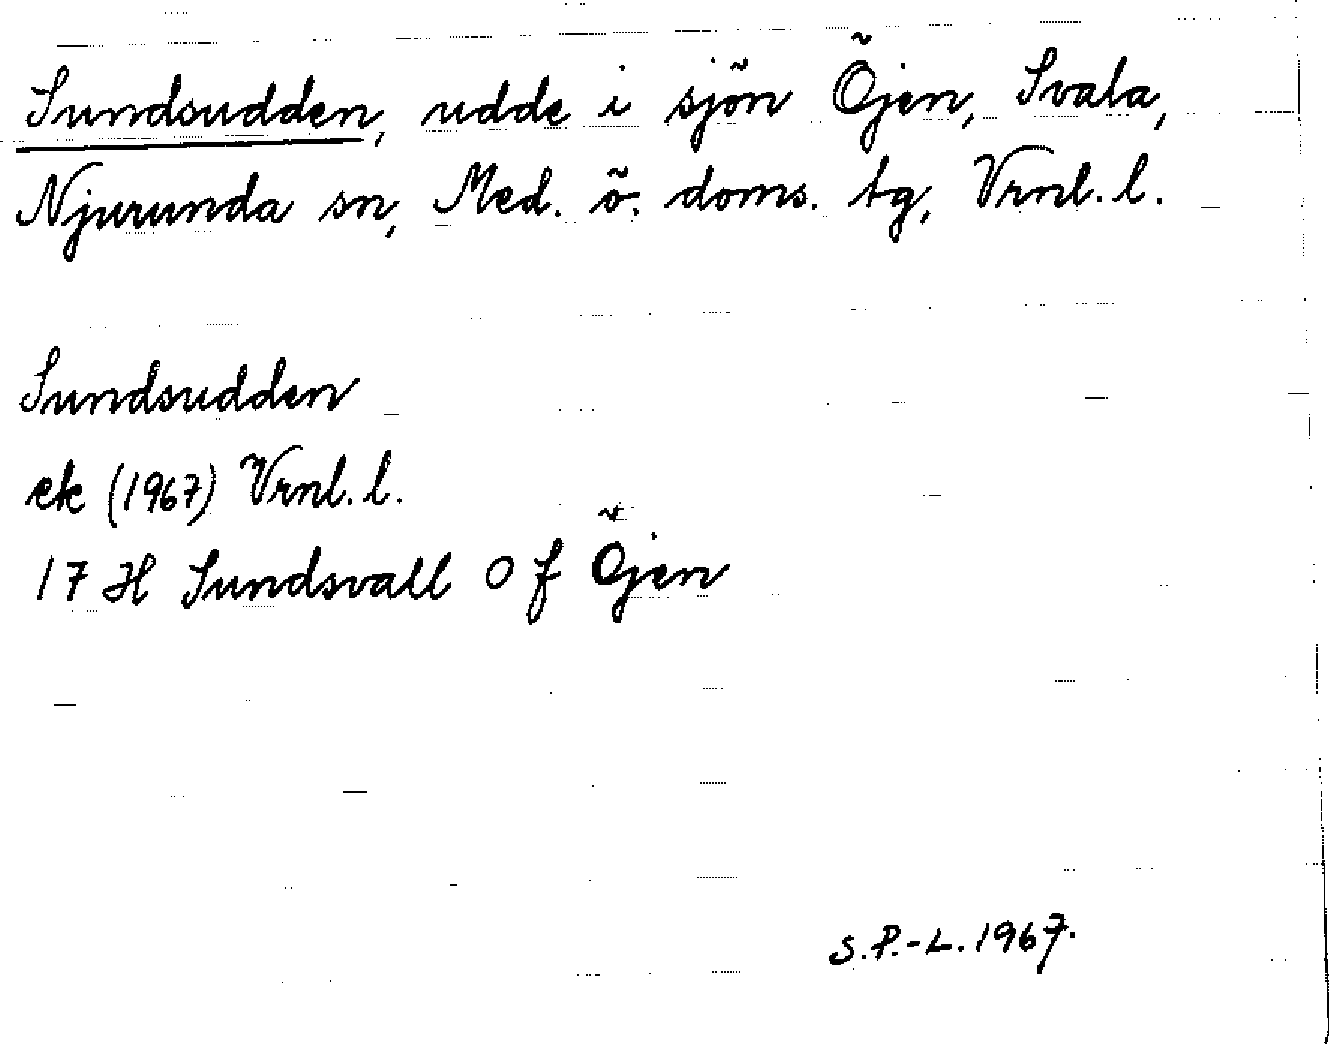 Sundsudden, udde i sjön Öjen, Svala,
Njurunda sn, Med. ö. doms. tg, Vrnl. l.
Sundsudden
ek (1967) Vrnl. l.
17 H Sundsvall O f Öjen
S. P.-L. 1967.